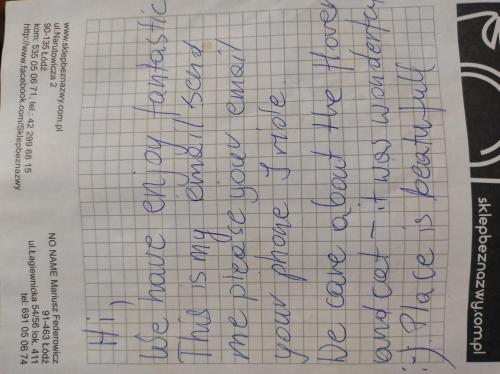 www.sklepbeznazwy.com.pl
ul.Narutowicza 2
90-135 Łódź
kom: 535 05 06 71, tel.: 42 299 68 15
http://www.facebook.com/Sklepbeznazwy
NO NAME Mariusz Federowicz
91-463 Łódź
ul.Łagiewnicka 54/56 lok. 411
tel: 691 05 06 74
Hi,
We have enjoy fantastic
This is my email send
me please your email
your phone I ride
We care about the flover
and cat – it was wonderful
:-) Place is beatufull
sklepbeznazwy.com.pl